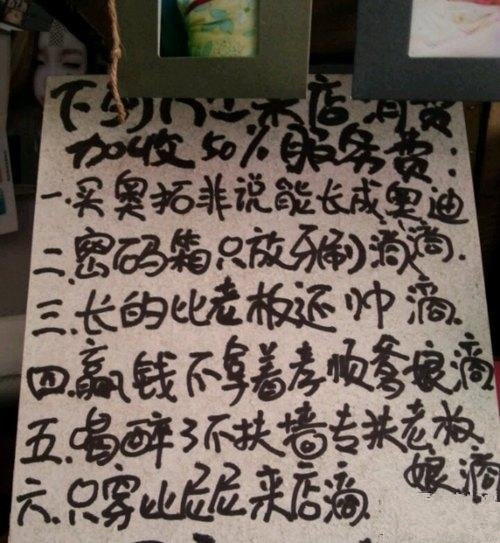 下列来店消费
加收50%服务费:
一.买奥拓非说能长成奥迪
二.密码箱只放牙刷滴.
三.长的比老板还帅滴.
四.赢钱不拿着孝顺爹娘滴
五.喝醉了不扶墙专扶老板
娘滴
六.只穿比尼尼来店滴